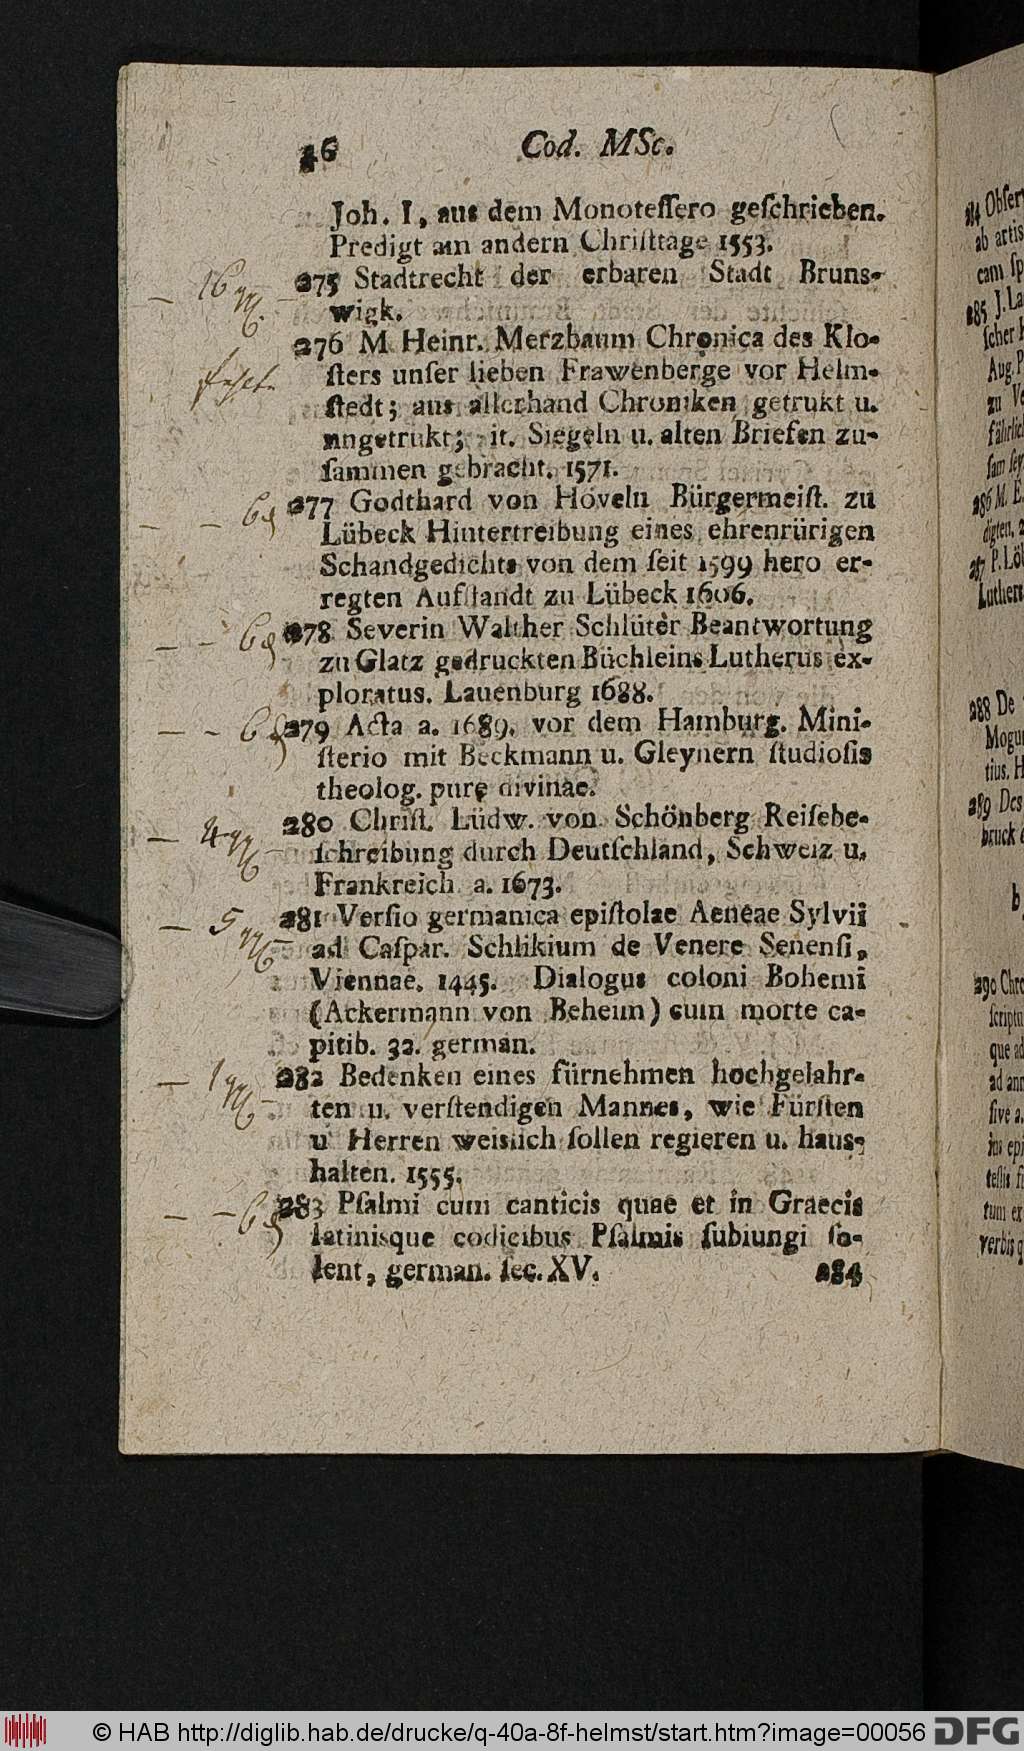 46 Cod. MSc.
Joh. I, aus dem Monoteſſero geſchrieben.
Predigt am andern Chriſttage 1553.
275 Stadtrecht der erbaren Stadt Bruns-
wigk.
276 M. Heinr. Merzbaum Chronica des Klo-
ſters unſer lieben Frawenberge vor Helm-
ſtedt; aus allerhand Chroniken getrukt u.
ungetrukt; it. Siegeln u. alten Briefen zu-
ſammen gebracht. 1571.
277 Godthard von Höveln Bürgermeiſt. zu
Lübeck Hintertreibung eines ehrenrürigen
Schandgedichts von dem ſeit 1599 hero er-
regten Aufſtandt zu Lübeck 1606.
278 Severin Walther Schlüter Beantwortung
zu Glatz gedruckten Büchleins Lutherus ex-
ploratus. Lauenburg 1688.
279 Acta a. 1689. vor dem Hamburg. Mini-
ſterio mit Beckmann u. Gleynern ſtudioſis
theolog. pure divinae.
280 Chriſt. Lüdw. von Schönberg Reiſebe-
ſchreibung durch Deutſchland, Schweiz u.
Frankreich a. 1673.
281 Verſio germanica epiſtolae Aeneae Sylvii
ad Caſpar. Schlikium de Venere Senenſi,
Viennae. 1445. Dialogus coloni Bohemi
(Ackermann von Beheim) cum morte ca-
pitib. 32. german.
282 Bedenken eines fürnehmen hochgelahr-
ten u. verſtendigen Mannes, wie Fürſten
u Herren weislich ſollen regieren u. haus-
halten. 1555.
283 Pſalmi cum canticis quae et in Graecis
latinisque codicibus Pſalmis ſubiungi ſo-
lent, german. ſec. XV.
284
16
6
6
6
4
5
1
6
ab artis
288 De
289 Des
© HAB http://diglib.hab.de/drucke/q-40a-8f-helmst/start.htm?image=00056 DFG